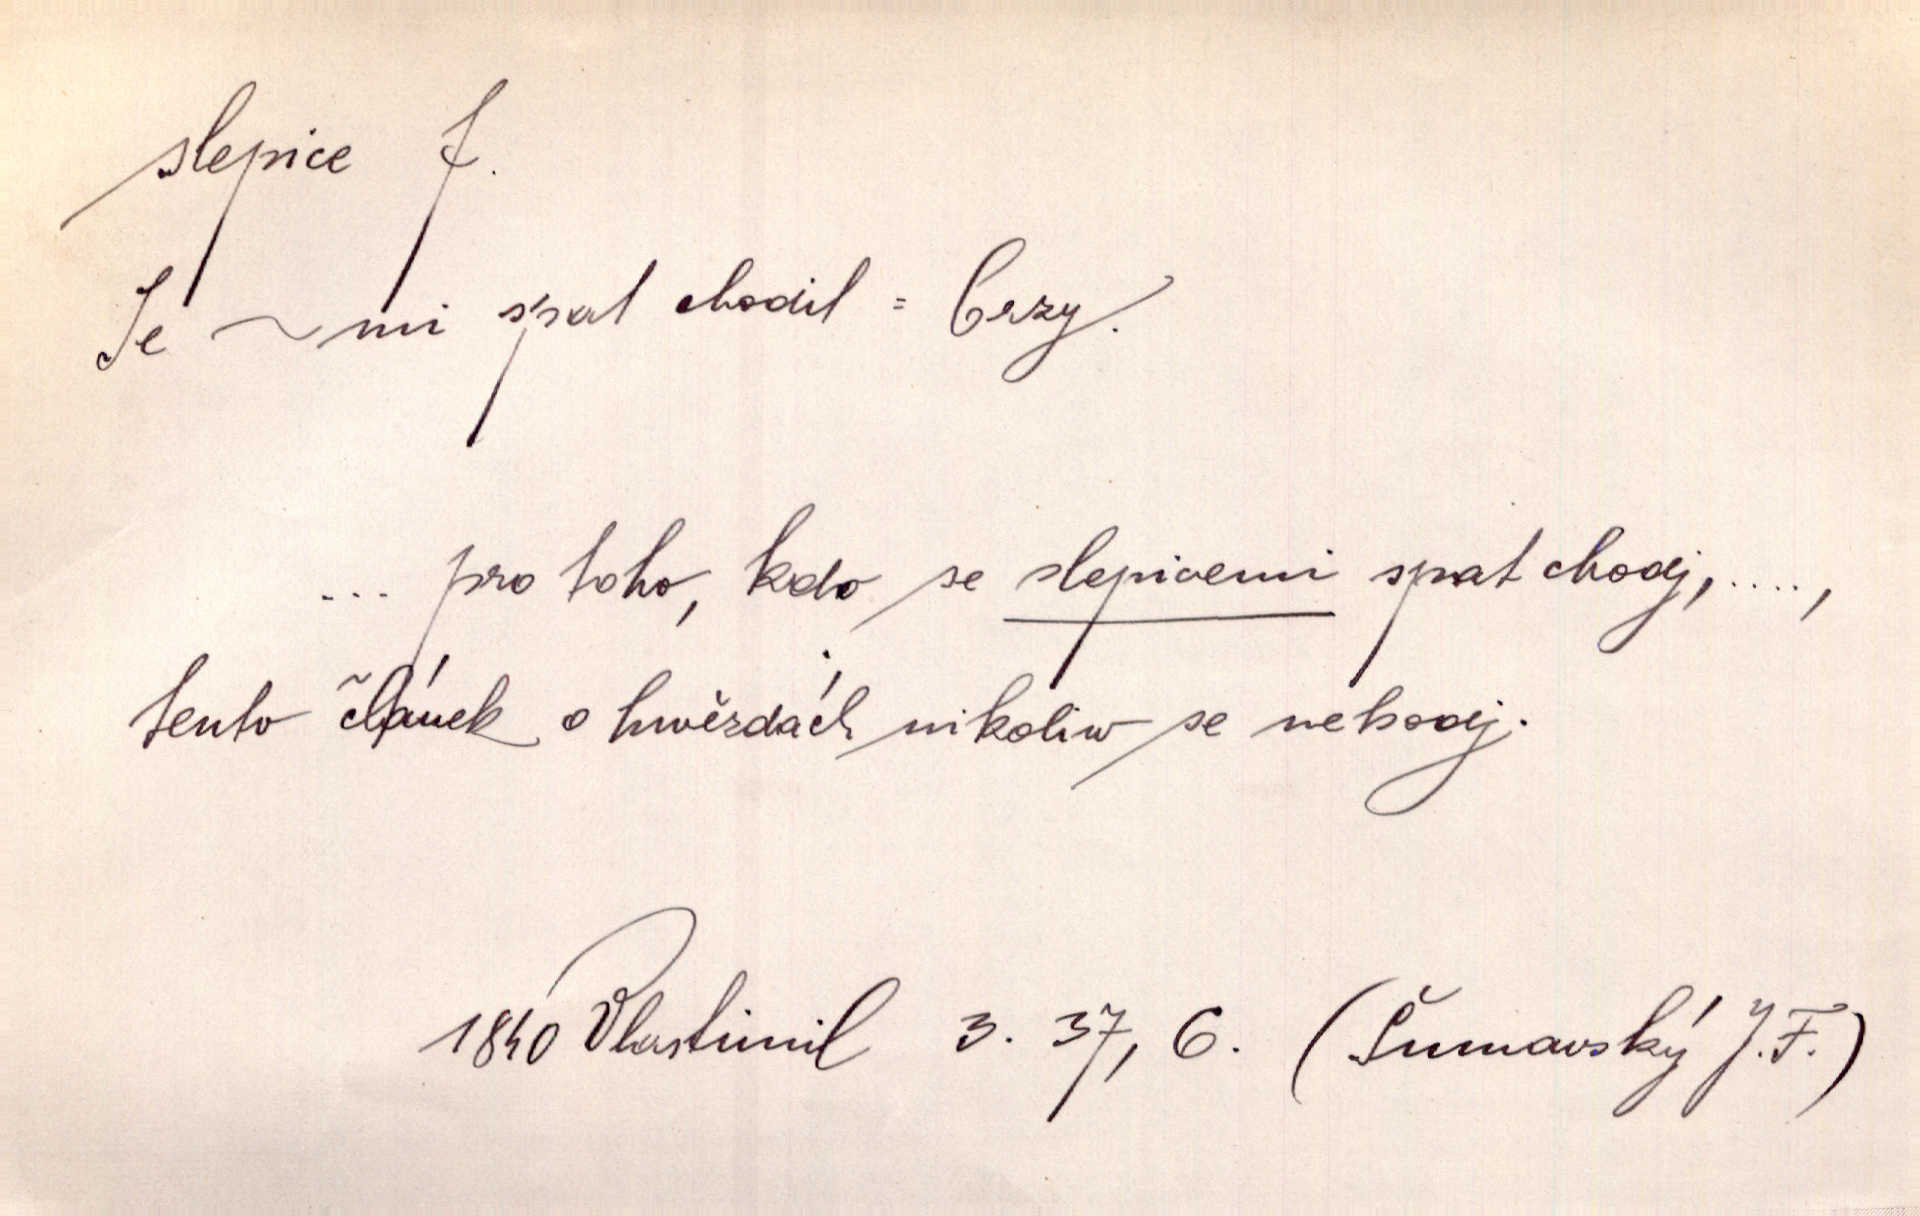 slepice f.
Se ~mi spat chodil = brzy.
... pro toho, kdo se slepicemi spat chodj, ....,
tento článek o hwězdách nikoliw se nehodj.
1840 Vlastimil 3. 37, 6. (Šumavský J. F.)